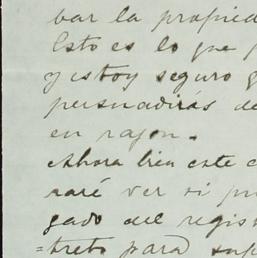 bar la propied
Esto es lo que p
y estoy seguro q
persuadirás de
en razon.
Ahora bien este c
raré ver si pu
gado del regis
=treto para sup